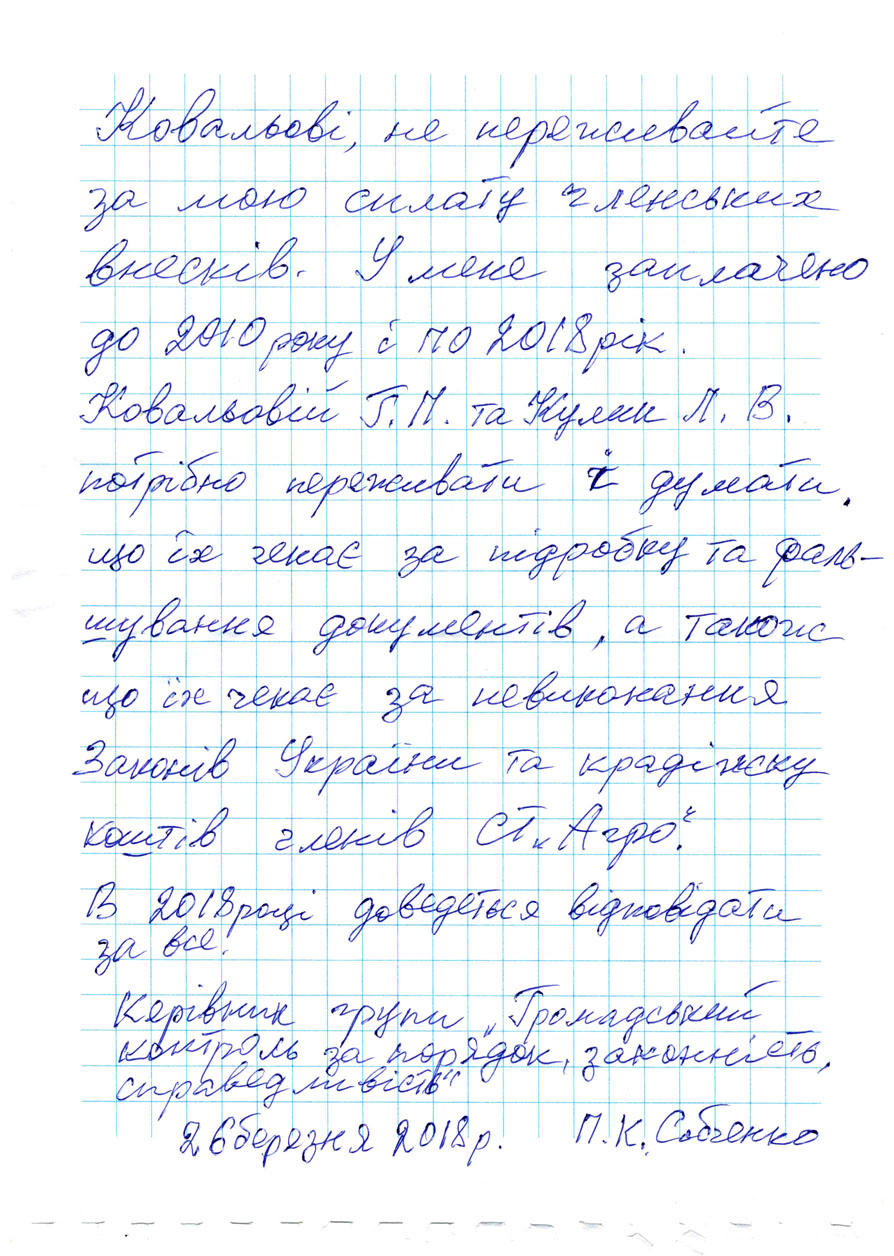 Ковальові, не переживайте
за мою сплату членських
внесків. У мене заплачено
до 2010 року і по 2018 рік.
Ковальовій Г. П. та Кулик Л. В.
потрібно переживати і думати,
що їх чекає за підробку та фаль-
шування документів, а також
що їх чекає за невиконання
Законів України та крадіжку
коштів членів СТ „Агро".
В 2018 році доведеться відповідати
за все!
Керівник групи „Громадський
контроль за порядок, законність,
справедливість"
26 березня 2018 р. П. К. Собченко